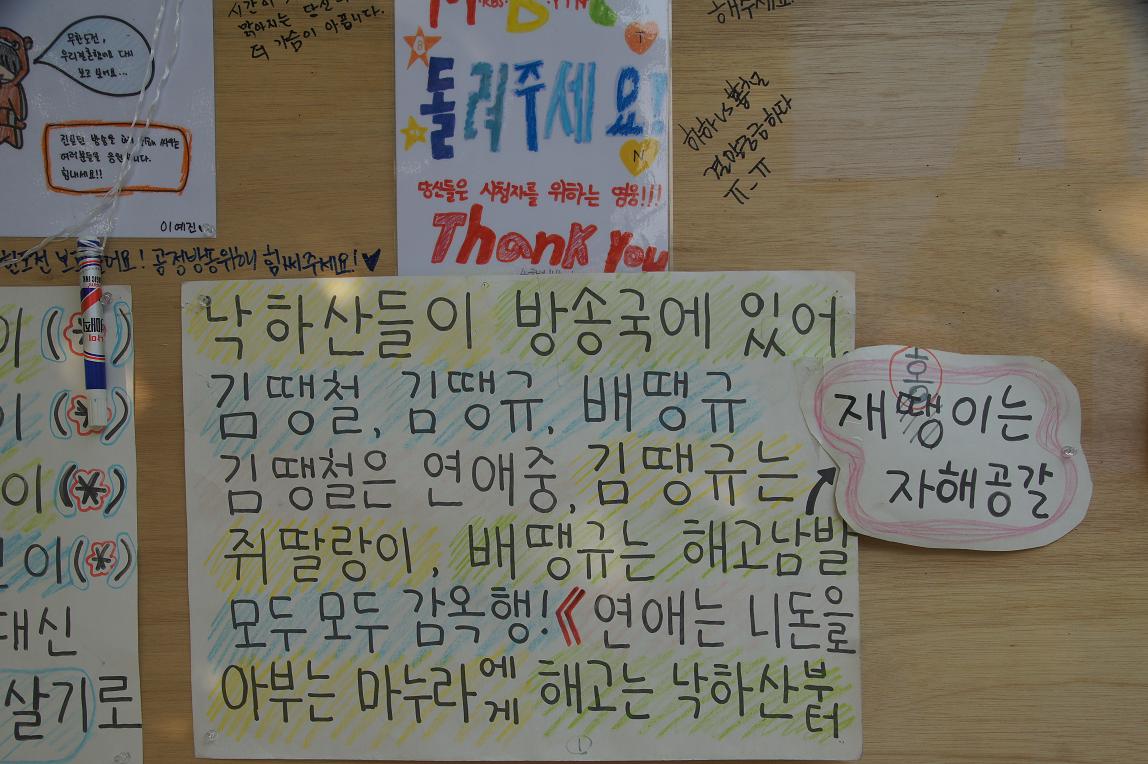 무한도전,
우리결혼했어요 다시
보고 싶어요...
여러분들을 응원합니다.
힘내세요!!
이예진
더 가슴이 아픕니다.
MBC KBS YTN
돌려주세요!
당신들은 시청자를 위하는 영웅!!!
Thank you
해주세요.
하하 VS 홍철
결말궁금하다
ㅠ-ㅠ
공정방송위해 힘써주세요!♥
낙하산들이 방송국에 있어.
김땡철, 김땡규, 배땡규
김땡철은 연애중, 김땡규는
쥐딸랑이, 배땡규는 해고남발
모두모두 감옥행!《연애는 니돈을로
아부는 마누라에게 해고는 낙하산부터
홍
재땡이는
자해공갈
이(*)
이(*)
이(*)
이(*)
대신
살기로
1